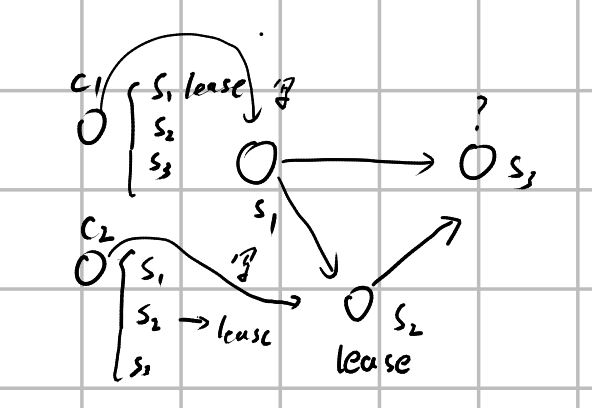 C1
S1 lease 写
S2
S3
?
S3
S1
C2
写
S1
S2 → lease
S3
S2
lease